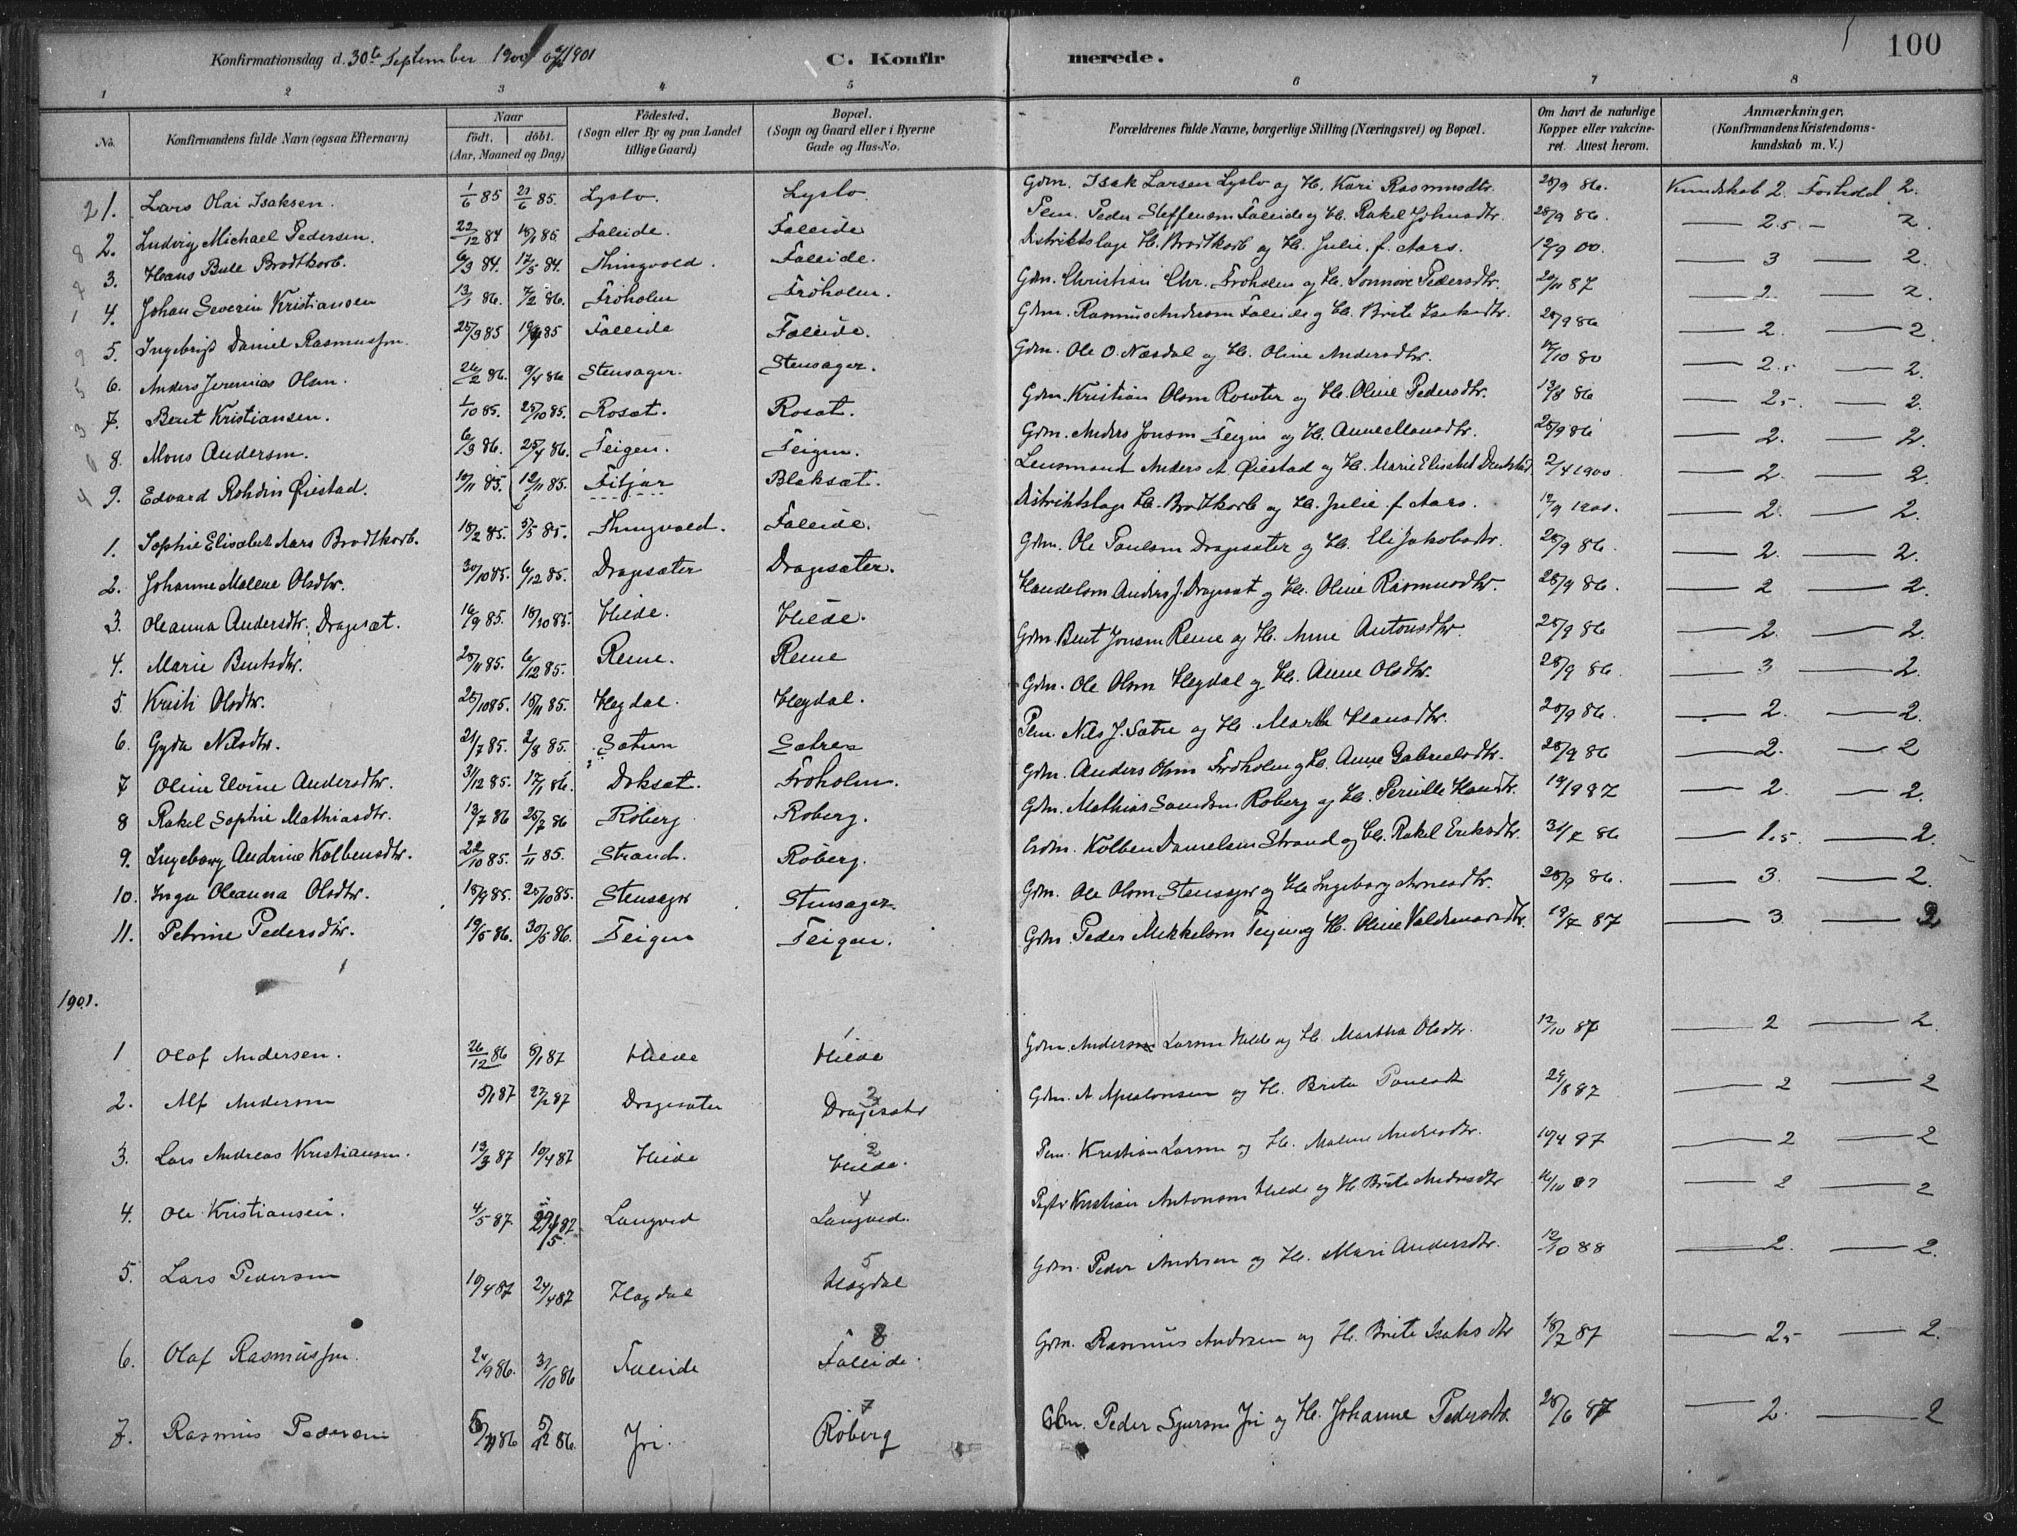 Konfirmationsdag d. 30te September 1900 og 1901 C. Konfirmerede. 100
1 2 3 4 5 6 7 8
No. Konfirmandens fulde Navn (ogsaa Efternavn) Naar födt. döbt. (Aar, Maaned og Dag) Födested. (Sogn eller By og paa Landet tillige Gaard) Bopæl. (Sogn og Gaard eller i Byerne Gade og Hus-No. Forældrenes fulde Navne, borgerlige Stilling (Næringsvei) og Bopæl. Om havt de naturlige Kopper eller vakcineret. Attest herom. Anmærkninger. (Konfirmandens Kristendomskundskab m. V.)
1. Lars Olai Isaksen. 1/6 85 21/6 85. Lyslo. Lyslo. Gdm. Isak Larsen Lyslo og H. Kari Rasmusdtr. 28/9 86. Kundskab 2. Forhold 2.
2. Ludvig Michael Pedersen. 22/12 84 18/1 85. Faleide. Faleide Pem. Peder Steffensen Faleide og H. Rakel Johnsdtr. 28/9 86. 2.5 — 2.
3. Hans Bull Brodtkorb. 6/3 84. 17/5 84. Thingvold. Faleide. Distriktslæge H. Brodtkorb og H. Julie f. Aars. 12/9 00. 3 — 2.
4. Johan Severin Kristiansen 13/1 86. 7/2 86. Fröholm Fröholm. Gdm. Christian Chr. Froholm og H. Sonnove Pedersdtr. 20/11 87 2. — 2.
5. Ingebrigt Daniel Rasmussen. 25/3 85 19/4 85 Faleide Faleide. Gdm. Rasmus Andersen Faleide og H. Brite Isaksdtr. 28/9 86 2. — 2.
6. Anders Jeremias Olsen. 26/2 86. 9/4 86 Stensager. Stensager. Gdm. Ole O. Næsdal og H. Oline Andersdtr. 12/10 80 2.5 — 2.
7. Bent Kristiansen. 1/10 85. 25/10 85. Rosæt. Rosæt. Gdm. Kristian Olsen Roseter og H. Oline Pedersdtr. 13/8 86 2.5 — 2.
8. Mons Andersen. 6/3 86. 25/4 86. Teigen. Teigen. Gdm. Anders Jonsen Teigen og H. Anne Monsdtr. 28/9 86 2. — 2.
9. Edvard Rohdin Øiestad. 10/11 85. 12/11 85. Fitjar Blaksæt. Lensmand Anders A. Øiestad og H. Marie Elisabet 2/4 1900 2. — 2.
1. Sophie Elisabet Aars Brodtkorb. 18/2 85. 5/5 85. Thingvold. Faleide. Distriktslæge H. Brodtkorb og H. Julie f. Aars. 12/9 1900. 2. — 2.
2. Johanne Malene Olsdtr. 30/10 85. 6/12 85. Dragesæter Dragesæter. Gdm. Ole Paulsen Dragesæter og H. Eli Jakobsdtr. 28/9 86. 2. — 2.
3. Oleanna Andersdtr. Dragesæt. 16/9 85. 18/10 85. Hilde. Hilde. Handelsm Anders J. Dragesæt og H. Oline Rasmusdtr. 28/9 86. 2 — 2.
4. Marie Bentsdtr. 28/11 85. 6/12 85. Reme. Reme Gdm. Bent Jonsen Reme og H. Anne Antonsdtr. 28/9 86 2. — 2.
5. Kristi Olsdtr. 25/10 85. 15/11 85. Hegdal. Hegdal. Gdm. Ole Olsen Hegdal og H. Anne Olsdtr. 28/9 86. 3 — 2.
6. Gyda Nilsdtr. 21/7 85. 2/8 85. Sætren Sætren Pem. Nils J. Sætre og H. Marthe Hansdtr. 28/9 86. 2. — 2.
7 Oline Elvine Andersdtr. 31/12 85. 17/1 86. Doksæt. Froholm. Gdm. Anders Olsen Froholm og H. Anne Gabrielsdtr. 28/9 86 2. — 2
8 Rakel Sophie Mathiasdtr. 13/7 86 25/7 86 Roberg Roberg. Gdm. Mathias Samdsen Roberg og H. Pernille Hansdtr. 19/9 87 2. — 2.
9. Ingeborg Andrine Kolbensdtr. 22/10 85. 1/11 85. Strand. Röberg. Gdm. Kolben Danielsen Strand og H. Rakel Eriksdtr. 31/7 86 1.5 — 2.
10. Inga Oleanna Olsdtr. 18/9 85. 25/10 85. Stensager Stensager. Gdm. Ole Olsen Stensager og H. Ingeborg Arnesdtr. 28/9 86. 3. — 2.
11. Petrine Pedersdtr. 19/5 86. 30/5 86. Teigen Teigen. Gdm. Peder Mikkelsen Teigen og H. Oline Valdemarsdtr. 19/7 87 3 — 2
1901.
1 Olaf Andersen. 26/12 86 8/1 87 Hilde 1 Hilde Gdm. Anders Larsen Hilde og H. Martha Olsdtr. 12/10 87 2 — 2.
2. Alf Andersen 5/1 87 27/2 87 Dragesæter 3 Dragesætr Gdm. A. Apselonsen og H. Brita Paulsdt 24/8 87 2 — 2
3. Lars Andreas Kristiansen. 13/3 87 10/4 87 Hilde 2 Hilde. Pem. Kristian Larsen og H. Malene Andersdtr. 10/4 97 2 — 2
4. Ole Kristiansen. 4/5 87 87 Langved 4 Langved. Kristian Antonsen Hilde og H. Brite Andersdtr 12/10 87 2 — 2
5. Lars Pedersen 10/4 87 24/4 87 Hagdal 5 Hagdal Gdm. Peder Andersen og H. Mari Andersdtr. 12/10 88 2. — 2.
6. Olaf Rasmussen. 21/9 86. 31/10 86 Faleide 8 Faleide. Gdm. Rasmus Andersen og H. Brite Isaksdtr 18/7 87 2.5 — 2.
7. Rasmus Pedersen 86 5/12 86. Jri. 7 Röberg Peder Sjursen Jri og H. Johanne Pedersdtr. 28/6 87 2. — 2